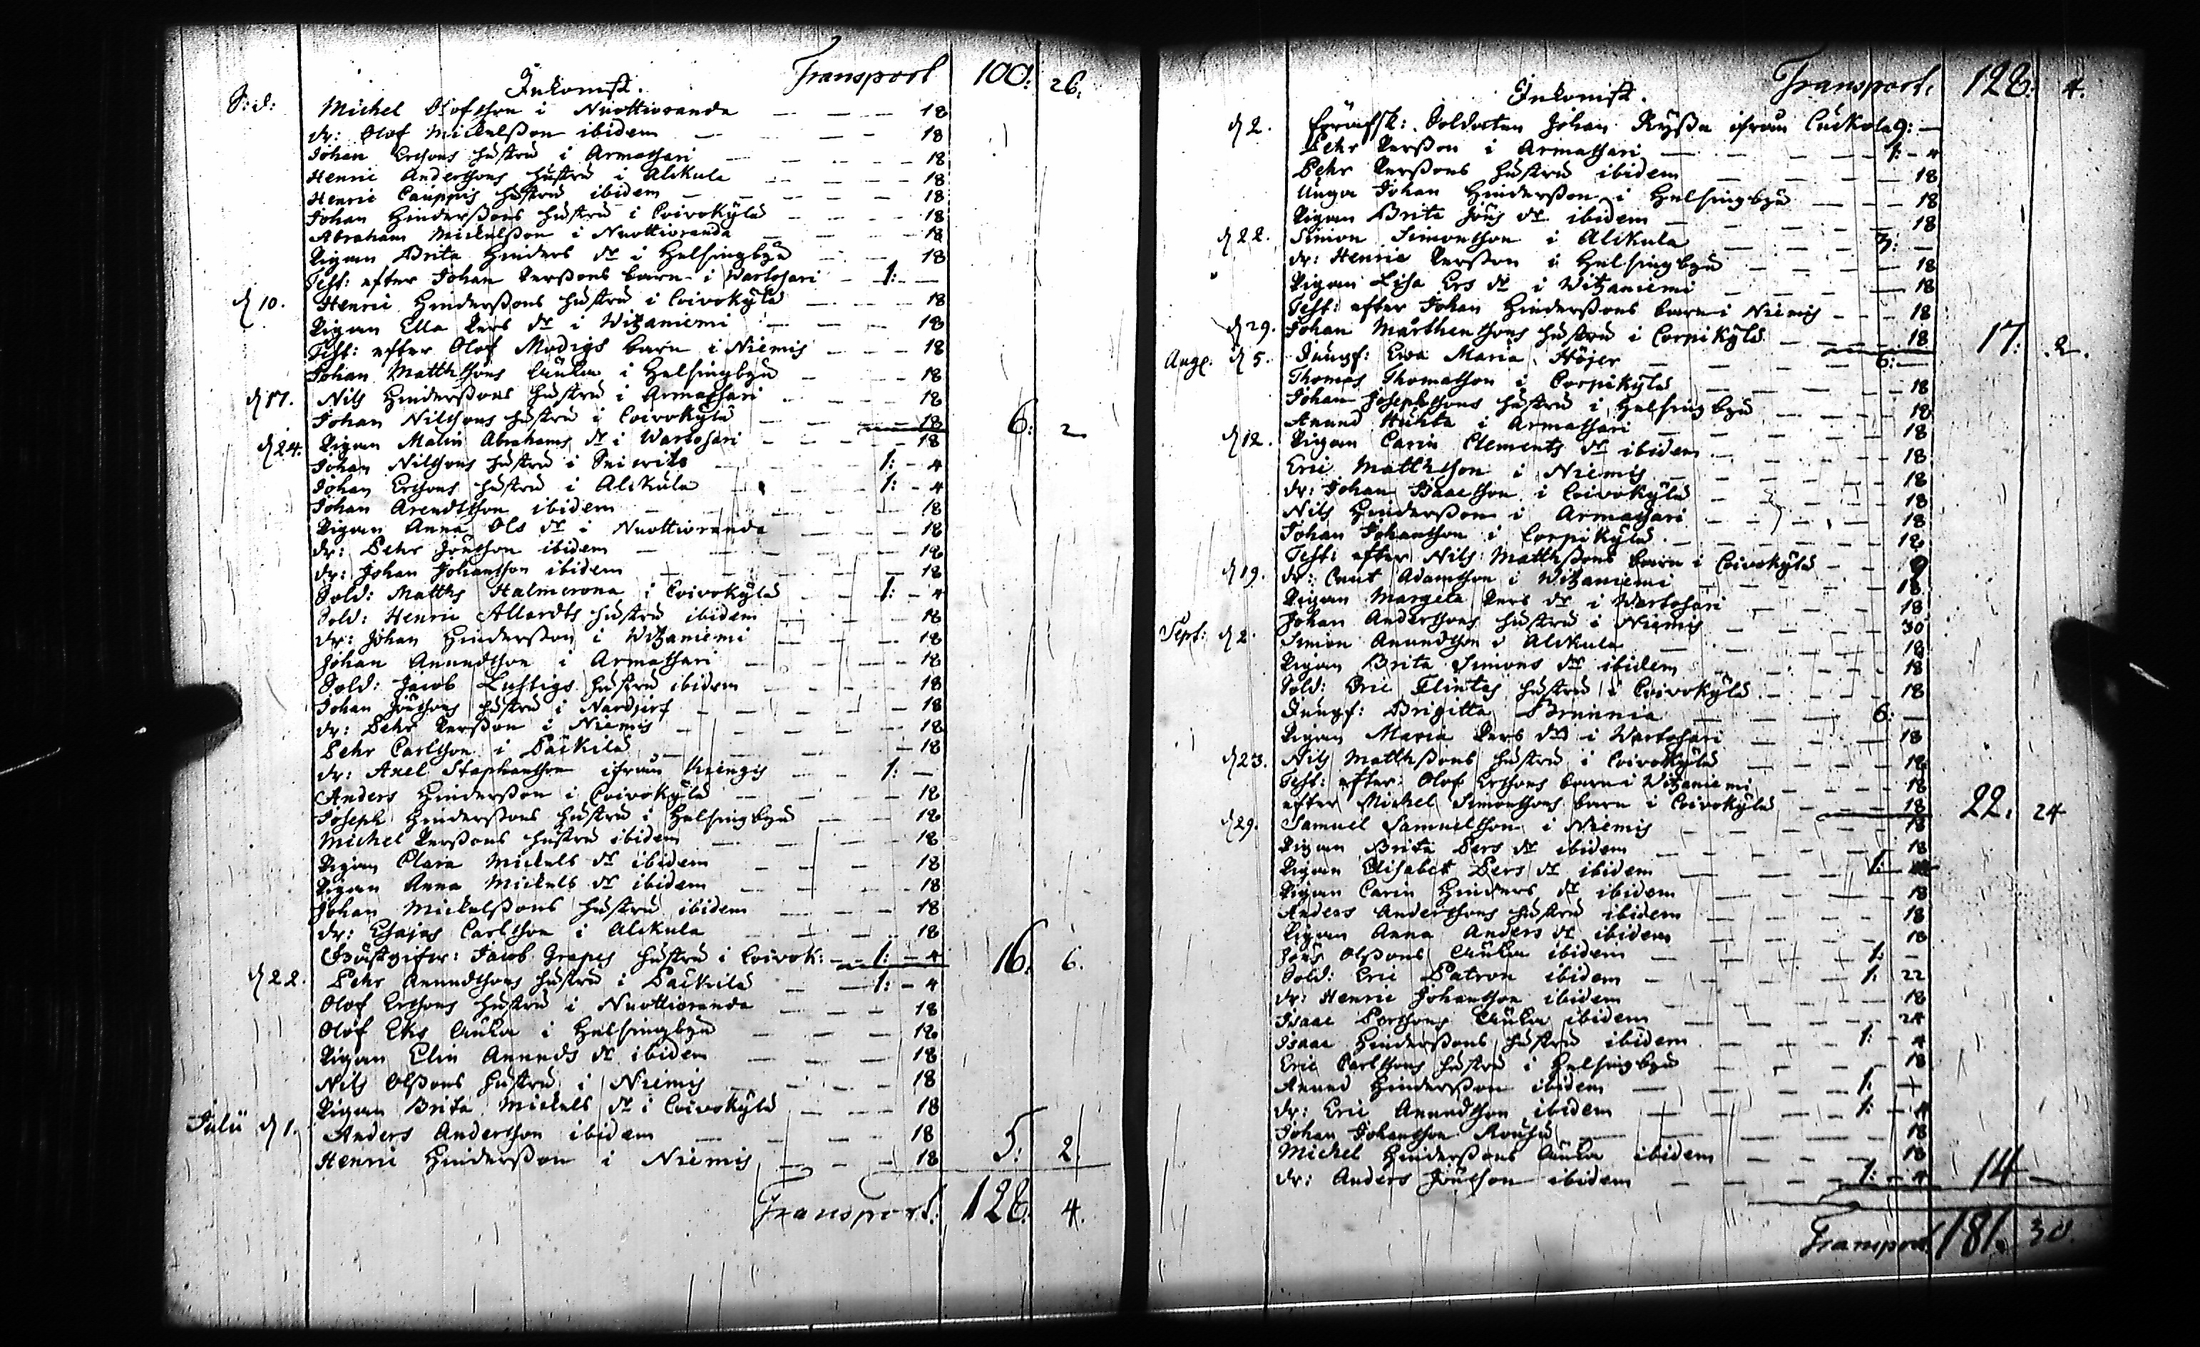 Transport 100: 26.
Inkomst.
S: d: Michel Olofsson i Nuottioranda — — — 18
dr: Olof Mickelsson ibidem — — — 18
Johan Ersons hustru i Armassari — — — 18
Henric Andersons hustru i Alikula — — — 18
Henric Cauppis hustru ibidem — — — 18
Johan Hinderssons hustru i Coivokylä — — — 18
Abraham Mickelsson i Nuottioranda — — — 18
Pigan Brita Hinders dr i Helsingbyn — — 18
Test: efter Johan Perssons barn i Wartosari — 1: —
d 10. Henric Hinderssons hustru i Coivokylä — — 18
Pigan Ella Pers dr i Witzaniemi — — — 18
Test: efter Olof Modigs barn i Niemis — — — 18
Johan Matthssons Änka i Helsingbyn — — 18
d 17. Nils Hinderssons hustru i Armassari — — 18
Johan Nilssons hustru i Coivokylä — — 18 6: 2
d 24. Pigan Malin Abrahams dr i Wartosari — — 18
Johan Nilssons hustru i — — 1: - 4
Johan Ersons hustru i Alikula — — 1: - 4
Johan Arendtson ibidem — — — 18
Pigan Anna Ols dr i Nuottioranda — — 18
dr: Pehr Jönsson ibidem — — — 18
dr: Johan Johansson ibidem — — — 18
Sold: Matths Halmerona i Coivokylä — — 1: - 4
Sold: Henric Allardts hustru ibidem — — 18
dr: Johan Hindersson i Witzaniemi — — 18
Johan Anundsson i Armassari — — — 18
Sold: Jacob Lustigs hustru ibidem — — 18
Johan Jönssons hustru i Nardjerf — — 18
dr: Pehr Persson i Niemis — — — 18
Pehr Carlsson i Päkilä — — — 18
dr: Axel Stephansson ifrån Kengis — — 1: —
Anders Hindersson i Coivokylä — — 18
Joseph Hinderssons hustru i Helsingbyn — — 18
Michel Perssons hustru ibidem — — 18
Pigan Clara Mickels dr ibidem — — 18
Pigan Anna Mickels dr ibidem — — 18
Johan Mickelssons hustru ibidem — — 18
dr: Esaias Carlsson i Alikula — — 18
Gästgifvar: Jacob Grapes hustru i Coivok: — 1: - 4 16: 6.
d 22. Pehr Anundssons hustru i Päkilä — 1: - 4
Olof Ersons hustru i Nuottioranda — — 18
Olof Eks Änka i Helsingbyn — — 18
Pigan Elin Anunds dr ibidem — — 18
Nils Olssons hustru i Niemis — — 18
Pigan Brita Mickels dr i Coivokylä — — 18
Julii d 1. Anders Anderson ibidem — — 18
Henric Hindersson i Niemis — — 18 5: 2.
Transport: 128. 4.
Transport. 128: 4.
Inkomst.
d 2. Soldaten Johan ifrån 9: —
Pehr Persson i Armassari — — 1: - 4
Pehr Perssons hustru ibidem — — 18
Unga Johan Hindersson i Helsingbyn — — 18
Pigan Brita Jöns dr ibidem — — 18
d 22. Simon Simonsson i Alikula — — 3: —
dr: Henric Persson i Helsingbyn — — 18
Pigan Lisa Ers dr i Witzaniemi — — 18
Test: efter Johan Hinderssons barn i Niemis — 18
d 29. Johan Marthenssons hustru i Corpikylä — — 18 17: 2.
Aug. d 5. Jungf: Ewa Maria Höjer — — 6: —
Thomas Thomasson i Corpikylä — — 18
Johan Josephssons hustru i Helsingbyn — — 18
Anund Huhta i Armassari — — 18
d 12. Pigan Carin Clements dr ibidem — — 18
Eric Matthsson i Niemis — — 18
dr: Johan Isaacson i Coivokylä — — 18
Nils Hindersson i Armassari — — 18
Johan Johansson i Corpikylä — — 18
Test: efter Nils Matthssons barn i Coivokylä — 9
d 19. dr: Cnut Adamsson i Witzaniemi — — 18
Pigan Margeta Pers dr i Wartosari — — 18
Johan Anderssons hustru i Niemis — — 30
Sept: d 2. Simon Anundsson i Alikula — — 18
Pigan Brita Simons dr ibidem — — 18
Sold: Eric Flintas hustru i Coivokylä — — 18
Jungf: Brigitta Brunnia — — 6: —
Pigan Maria Pers dr i Wartosari — — 18
d 23. Nils Matthssons hustru i Coivokylä — — 18
Test: efter Olof Ersons barn i Witzaniemi — 18
efter Michel Simonssons barn i Coivokylä — 18 22: 24
d 29. Samuel Samuelsson i Niemis — — 18
Pigan Brita Pers dr ibidem — — 18
Pigan Elisabet Pers dr ibidem — — 1: —
Pigan Carin Hinders dr ibidem — — 18
Anders Andersons hustru ibidem — — 18
Pigan Anna Anders dr ibidem — — 18
Jöns Olssons Änka ibidem — — 1: -
Sold: Eric Patron ibidem — — 1: 22
dr: Henric Johansson ibidem — — 18
Isaac Änka ibidem — — 24
Isaac Hinderssons hustru ibidem — — 1: - 4
Eric Carlssons hustru i Helsingbyn — — 18
Anund Hindersson ibidem — — 1:
dr: Eric Anundsson ibidem — — 1: - 4
Johan Johansson Rousu — — 18
Michel Hinderssons Änka ibidem — — 18
dr: Anders Jönsson ibidem — — 1: - 4 14 —
Transport 181. 30.